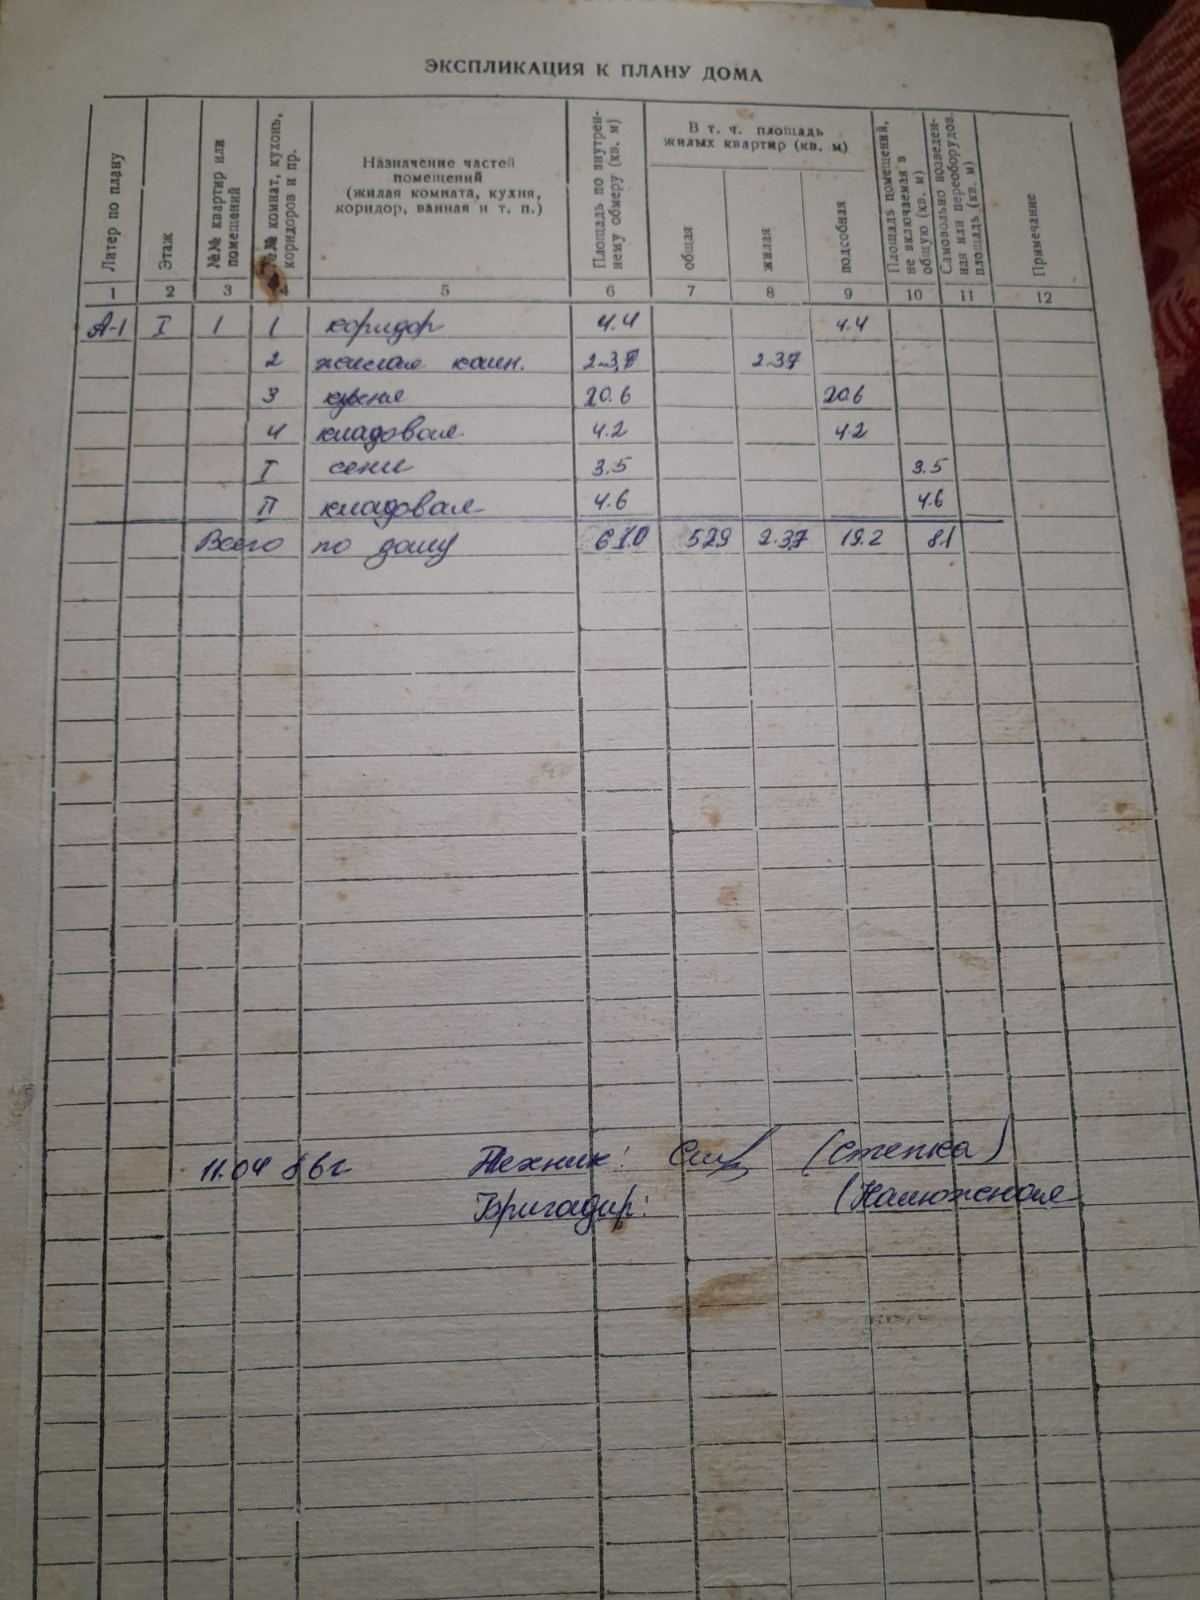 ЭКСПЛИКАЦИЯ К ПЛАНУ ДОМА
Литер по плану
Этаж
№№ квартир или помещений
№№ комнат, кухонь, коридоров и пр.
Назначение частей
помещений
(жилая комната, кухня,
коридор, ванная и т. п.)
Площадь по внутрен-
нему обмеру (кв. м)
В т. ч. площадь
жилых квартир (кв. м)
общая
жилая
подсобная
Площадь помещений,
не включаемая в
общую (кв. м)
Самовольно возведен-
ная или переоборудов.
площадь (кв. м)
Примечание
1 2 3 5 6 7 8 9 10 11 12
А-1 I 1 1 коридор 4.4 4.4
2 жилая комн. 23,7 237
3 кухня 20.6 20.6
4 кладовая 4.2 4.2
I сени 3.5 3.5
II кладовая 4.6 4.6
Всего по дому 61.0 529 23,7 19.2 8.1
11.04 86г Техник: (Степка)
Бригадир: